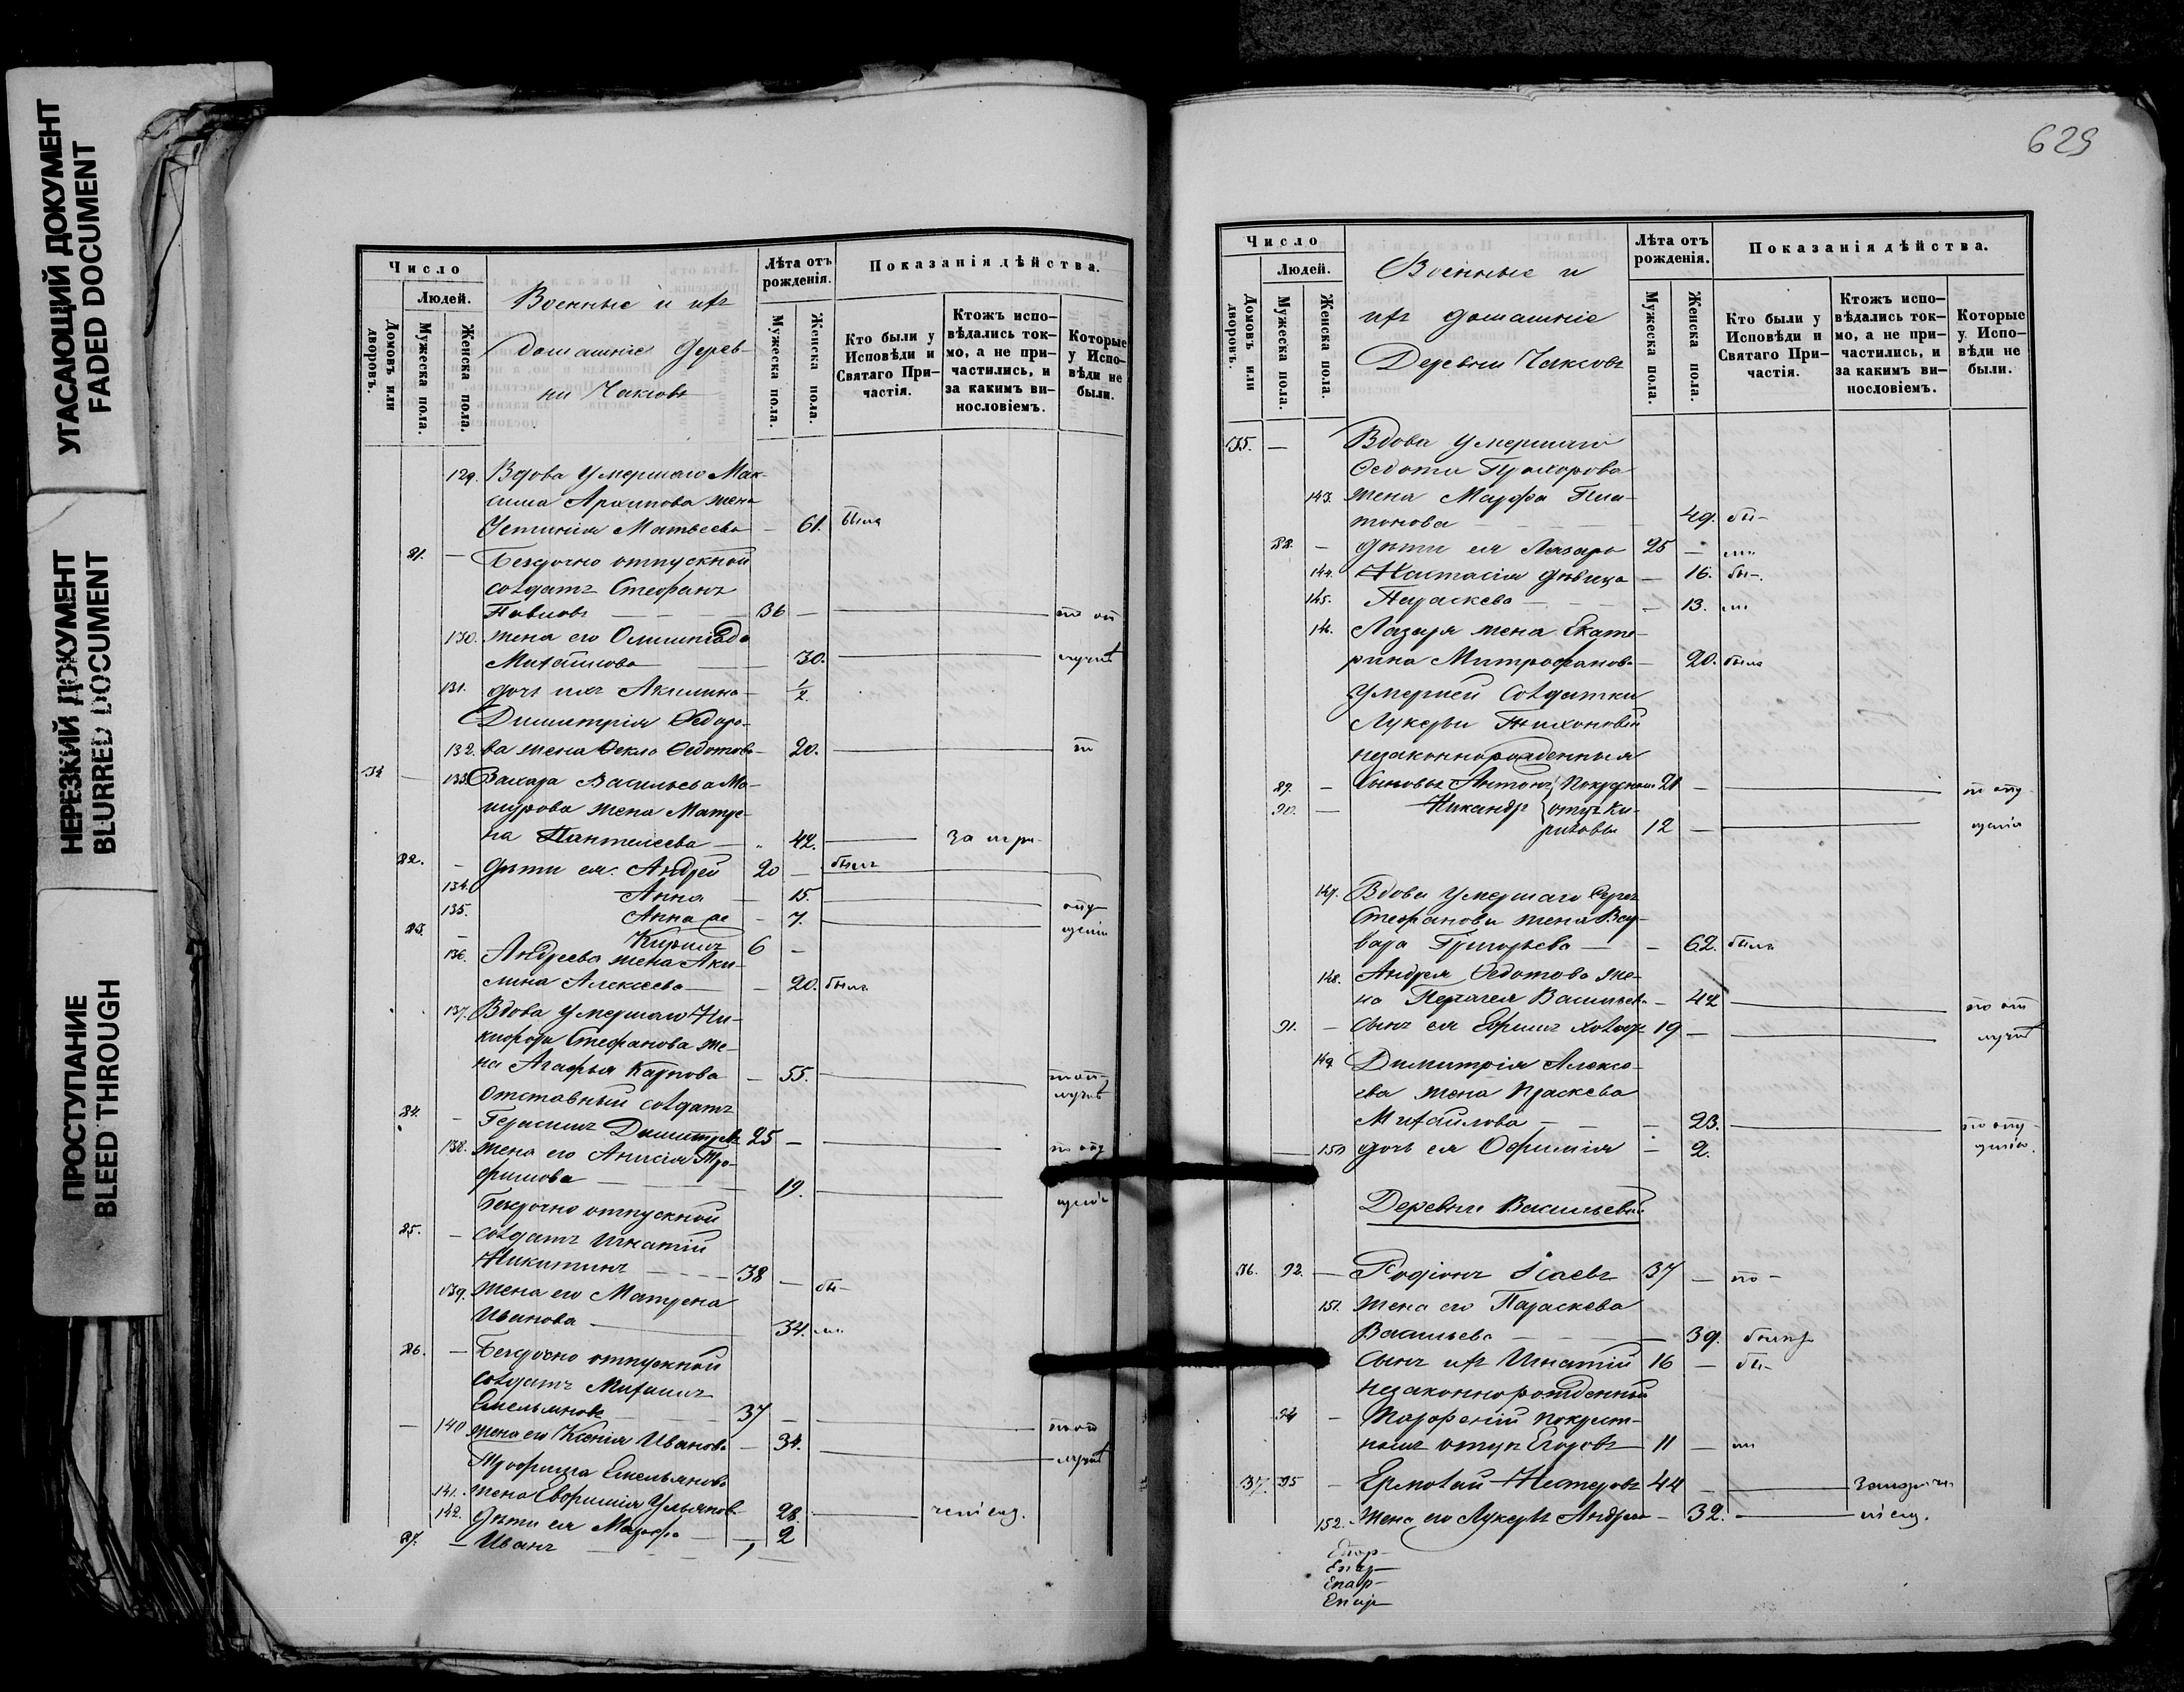 УГАСАЮЩИЙ ДОКУМЕНТ
FADED DOCUMENT
НЕРЕЗКИЙ ДОКУМЕНТ
BLURRED DOCUMENT
ПРОСТУПАНИЕ
BLEED THROUGH
Число
Людей.
Домовъ или дворовъ.
Мужеска пола.
Женска пола.
Военные и ихъ
домашніе дерев-
ни
Лѣта отъ рожденія.
Мужеска пола.
Женска пола.
Показанія дѣйства.
Кто были у Исповѣди и Святаго При-частія.
Ктожъ испо-вѣдались ток-мо, а не при-частились, и за какимъ ви-нословіемъ.
Которые у Испо-вѣди не были.
129. Вдова умершаго Мак-
сима Архипова жена
Устинія Матвеева — 61. была
81. — Безсрочно отпускной
солдатъ Стефанъ
Павловъ — 36 — по от
130. жена его Олимпіада
Михайлова — 30. лучкѣ
131. дочь ихъ Акилина — 1/2
Димитрія Ѳедоро-
132. ва жена Ѳекла Ѳедотова — 20. — по
34 — 133. Захара Васильева Ма-
жена Матре-
на Пантелеева — 42.
82. — дѣти ея: Андрей 20 — былъ
134. Анна — 15.
135. Анна же — 7. опу-
83. — Кирилъ 6 — щенію
136. Андреева жена Аки-
лина Алексеева — 20. была
137. Вдова умершаго Ни-
кифора Стефанова же-
на Агафья Карпова — 55. по от
лучкѣ
Отставный солдатъ
84. — Герасимъ Димитріевъ 25 — по опу
138. жена его Анисія Тро-
фимова — 19. щенію
Безсрочно отпускной
85. — солдатъ Игнатій
Никитинъ — 38 — бы-
139. жена его Матрена
Иванова — 34. ли
86. — Безсрочно отпускной
солдатъ Михаилъ
Емельяновъ 37 —
140 жена его Ксенія Иванова — 34. по от
Трофима Емельянова лучкѣ
141. жена Евфимія Ульянова 28.
142. дѣти ея Марфа — 2
87. — Иванъ — 1 —
629
Число
Людей.
Домовъ или дворовъ.
Мужеска пола.
Женска пола.
Военные и
ихъ домашніе
Деревни
Лѣта отъ рожденія.
Мужеска пола.
Женска пола.
Показанія дѣйства.
Кто были у Исповѣди и Святаго При-частія.
Ктожъ испо-вѣдались ток-мо, а не при-частились, и за какимъ ви-нословіемъ.
Которые у Испо-вѣди не были.
35. — Вдова умершаго
Ѳедота Прохорова
143. жена Марфа Пла-
тонова — 49. бы-
88. — дѣти ея Лазарь 25 — ли
144. Настасія дѣвица — 16. бы-
145. Параскева — 13. ли
146. Лазаря жена Екате-
рина Митрофанова — 20. была
умершей солдатки
Лукерьи Тихоновой
незаконнорожденныя
89. — сыновья Антонъ 21 — по опу-
90. — Никандръ
12 — щенію
147. Вдова умершаго
Стефанова жена Вар-
вара Григорьева — 62. была
148. Андрея Ѳедотова же-
на Пелагея Васильева — 42 — по от
91. — сынъ ея Ефимъ холост 19 — лучкѣ
149 Димитрія Алексе-
ева жена Праскева
Михайлова — 23. — по опу-
150 дочь ея Офимія — 2. щенію.
Деревни Васильевой
36. 92. — Родіонъ Исаевъ 37 —
151. жена его Параскева
Васильева — 39.
сынъ ихъ Игнатій 16 — бы-
незаконнорожденный
94 — Парфеній по крест-
номъ отцѣ Егоровъ 11 — ли
37. 95 — Ермолай Нестеровъ 44 —
152. жена его Лукерья Андреева — 32.
Епар-
Епар-
Епар-
Епар-